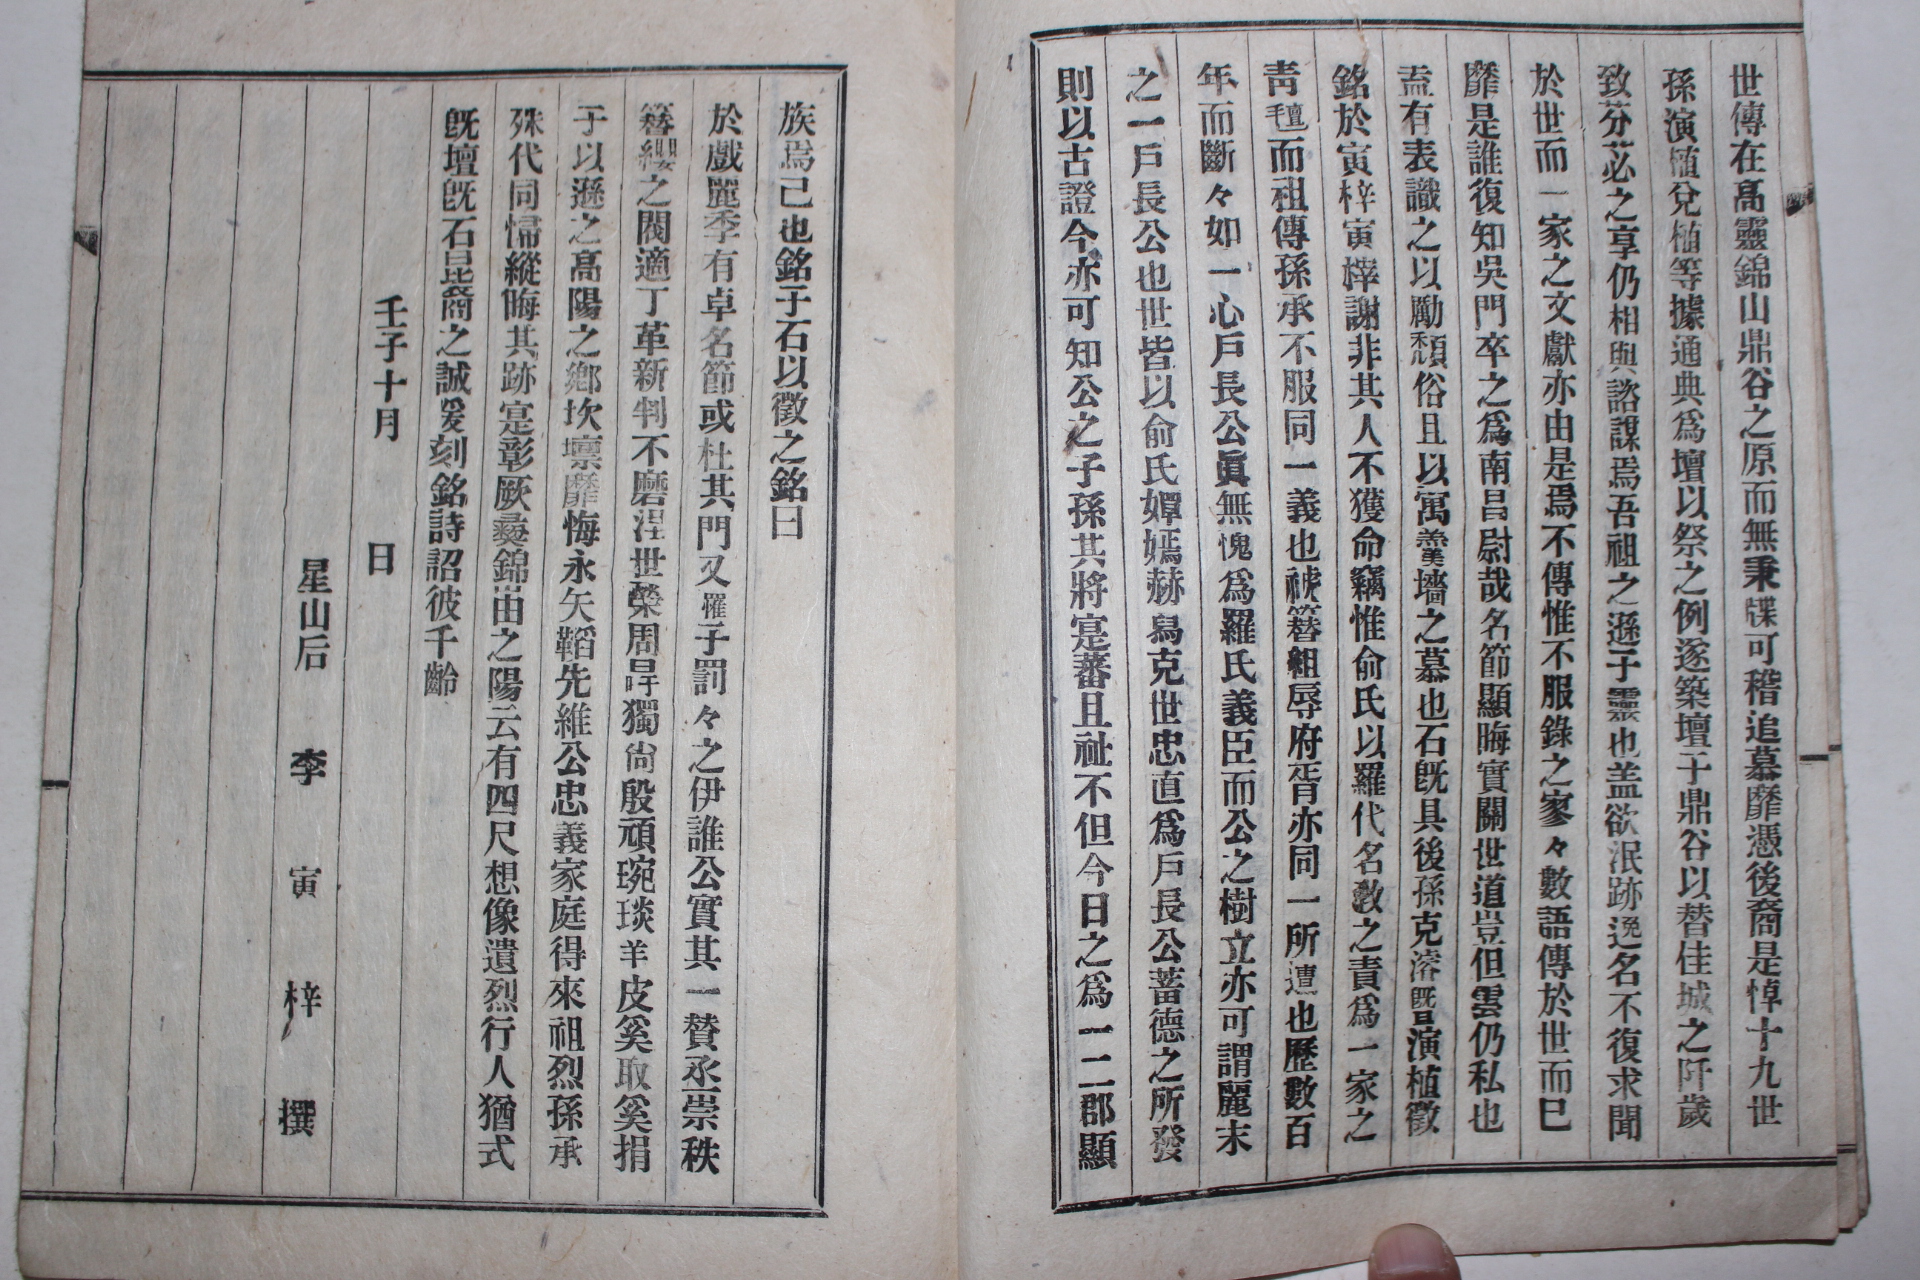 世傳在高靈錦山鼎谷之原而無秉牒可稽追慕靡憑後裔是悼十九世
孫演植兌植等據通典爲壇以祭之例遂築壇于鼎谷以替佳城之阡歲
致芬苾之享仍相與諮謀焉吾祖之遜于靈也盖欲泯跡逸名不復求聞
於世而一家之文獻亦由是焉不傳惟不服錄之寥々數語傳於世而已
靡是誰復知吳門卒之爲南昌尉哉名節顯晦實關世道豈但雲仍私也
盍有表識之以勵頹俗且以寓羹墻之慕也石旣具後孫克溶旣演植徵
銘於寅梓寅梓謝非其人不獲命竊惟俞氏以羅代名敎之責爲一家之
靑氈而祖傳孫承不服同一義也褫簪組辱府胥亦同一所遭也歷數百
年而斷々如一心戶長公眞無愧爲羅氏義臣而公之樹立亦可謂麗末
之一戶長公也世皆以俞氏嬋嫣赫舃克世忠直爲戶長公蓄德之所發
則以古證今亦可知公之子孫其將寔蕃且祉不但今日之爲一二郡顯
族焉已也銘于石以徵之銘曰
於戲麗季有卓名節或杜其門又罹于罰々之伊誰公實其一贊丞崇秩
簪纓之閥適丁革新判不磨涅世榮周冔獨尙殷頑琬琰羊皮奚取奚捐
于以遜之高陽之鄕坎壈靡悔永矢韜先維公忠義家庭得來祖烈孫承
殊代同歸縱晦其跡寔彰厥彛錦山之陽云有四尺想像遺烈行人猶式
旣壇旣石昆裔之誠爰刻銘詩詔彼千齡
壬子十月 日
星山后 李寅梓 撰